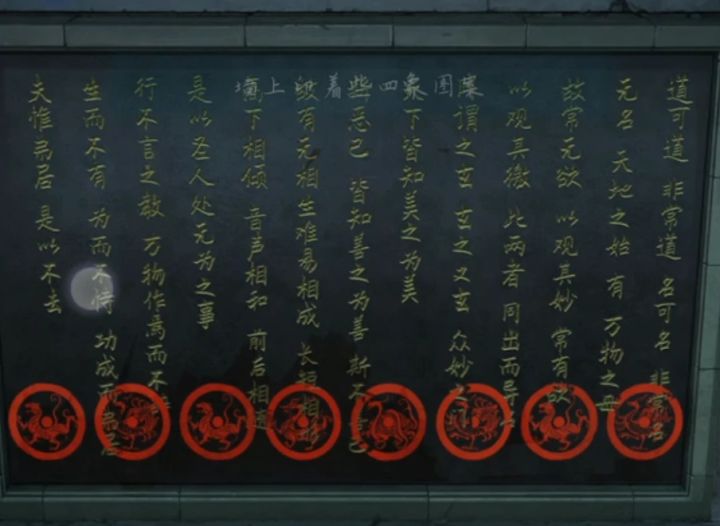 道可道 非常道 名可名 非常名
无名 天地之始 有 万物之母
故常无欲 以观其妙 常有欲
以观其徼 此两者 同出而异
谓之玄 玄之又玄 众妙之门
下皆知美之为美
恶已 皆知善之为善 斯不善已
故有无相生 难易相成 长短相形
下相倾 音声相和 前后相随
是以圣人处无为之事
行不言之教 万物作焉而不
生而不有 为而不恃 功成而弗居
夫惟弗居 是以不去
墙上 着 四象图案